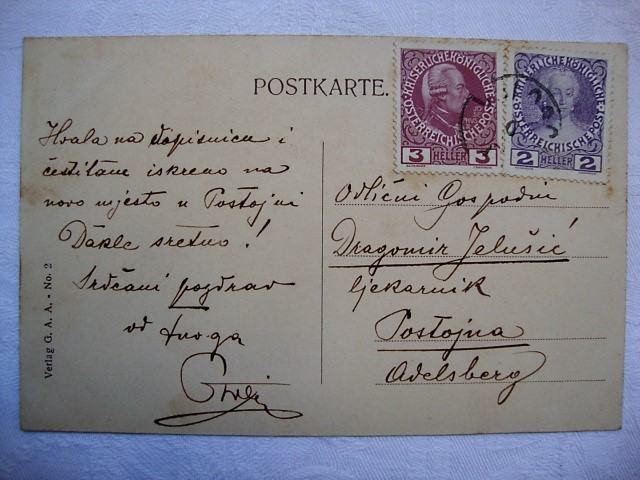 POSTKARTE.
KAISERLICHE KÖNIGLICHE ÖSTERREICHISCHE POST
3 HELLER 3
KAISERLICHE KÖNIGLICHE ÖSTERREICHISCHE POST
2 HELLER 2
Hvala na dopisnici i
čestitam iskreno na
novo mjesto u Postojni
Dakle sretno!
Srdčani pozdrav
od tvoga
Odlični Gospodin
Dragomir Jelušić
ljekarnik
Postojna
Adelsberg
Verlag G. A. A. • No. 2